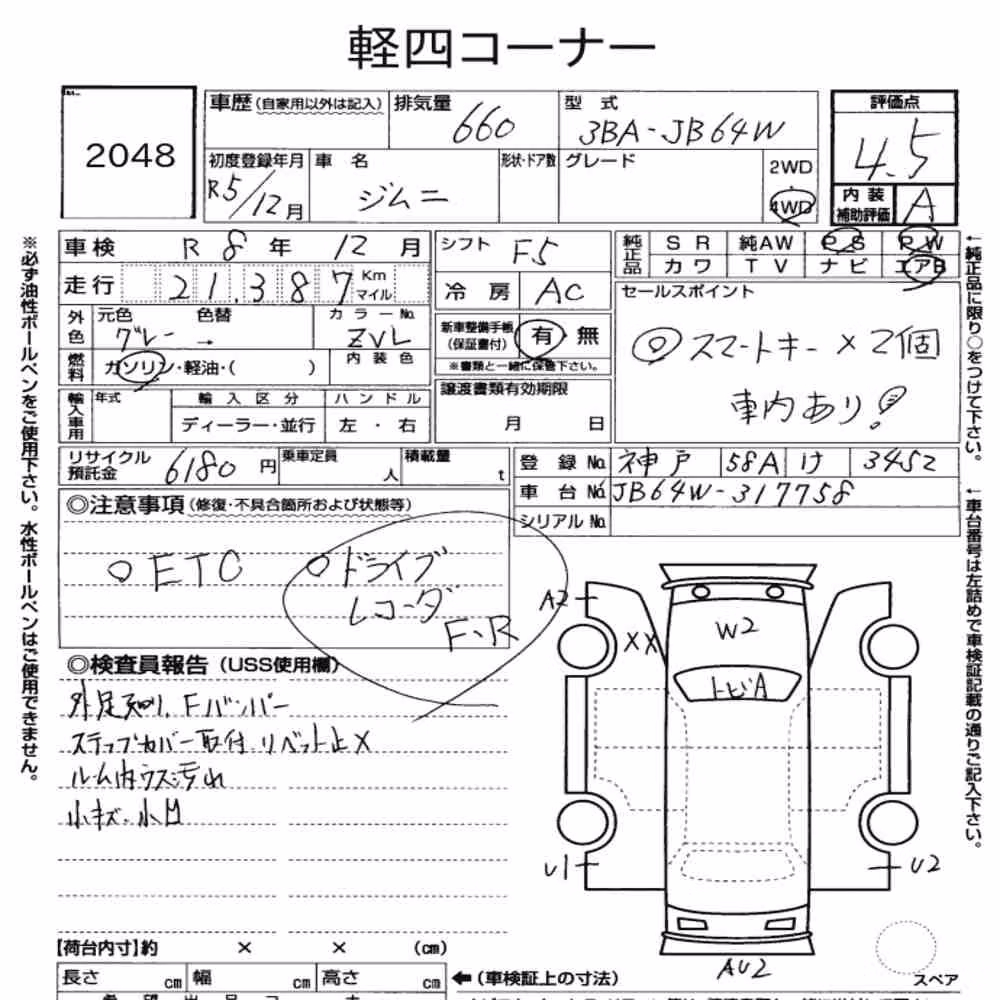 軽四コーナー
2048
車歴(自家用以外は記入)
排気量 660
型式 3BA-JB64W
評価点 4.5
初度登録年月 R5/12月
車名 ジムニー
形状・ドア数
グレード
2WD
4WD
内装補助評価 A
車検 R8年12月
シフト F5
純正品 SR 純AW PS PW
カワ TV ナビ エアB
走行 21,387 Km マイル
冷房 AC
セールスポイント
外色 元色 グレー 色替 → カラーNo. ZVL
新車整備手帳(保証書付) 有・無
◎スマートキー×2個
燃料 ガソリン・軽油・( ) 内装色
※書類と一緒に保管下さい。
輸入車用 年式 輸入区分 ハンドル
譲渡書類有効期限
車内あり!
ディーラー・並行 左・右
月 日
リサイクル預託金 6180円 乗車定員 人 積載量 t
登録No. 神戸 58A け 3452
車台No. JB64W-317758
シリアルNo.
◎注意事項(修復・不具合箇所および状態等)
○ETC ○ドライブ
レコーダ
F・R
◎検査員報告(USS使用欄)
Fバンパー
ステップカバー取付 リベット止×
ルーム内ウス汚れ
小キズ・小凹
A2
XX
W2
トビA
U1
U2
AU2
スペア
【荷台内寸】約 × × (cm)
長さ cm 幅 cm 高さ cm
←(車検証上の寸法)
※必ず油性ボールペンをご使用下さい。水性ボールペンはご使用できません。
←純正品に限り○をつけて下さい。
←車台番号は左詰めで車検証記載の通りご記入下さい。